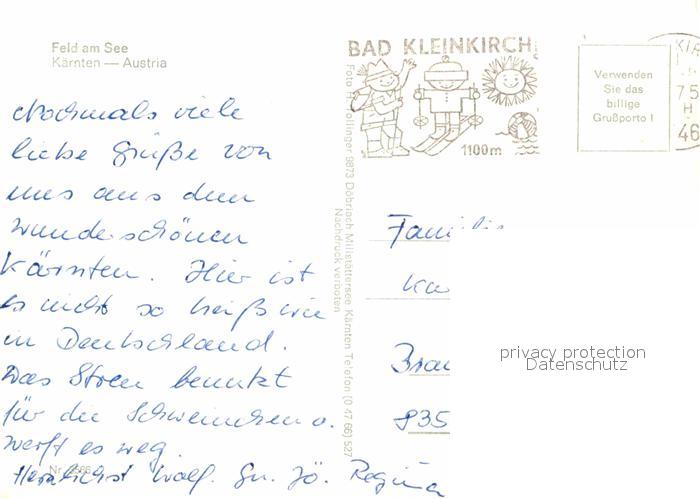 Feld am See
Kärnten — Austria
BAD KLEINKIRCH
1100m
Verwenden
Sie das
billige
Grußporto !
KIR
75
H
46
Nochmals viele
liebe Grüße von
uns aus dem
wunderschönen
Kärnten. Hier ist
es nicht so heiß wie
in Deutschland.
Das Stroh benutzt
für die Schweinchen o.
werft es weg.
Herzlichst Wolf. Gu. Jö. Regina
Nachdruck verboten
Döbriach Millstättersee Kärnten Telefon (0 47 66) 527
Familie
835
privacy protection
Datenschutz